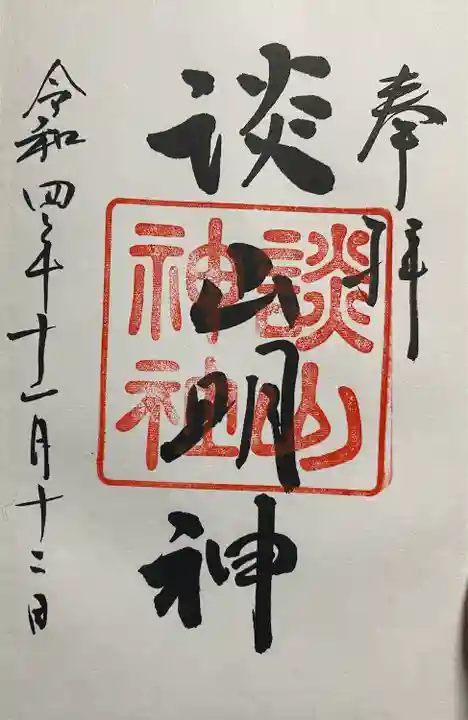 奉拝
談山明神
談山
神社
令和四年十一月十二日